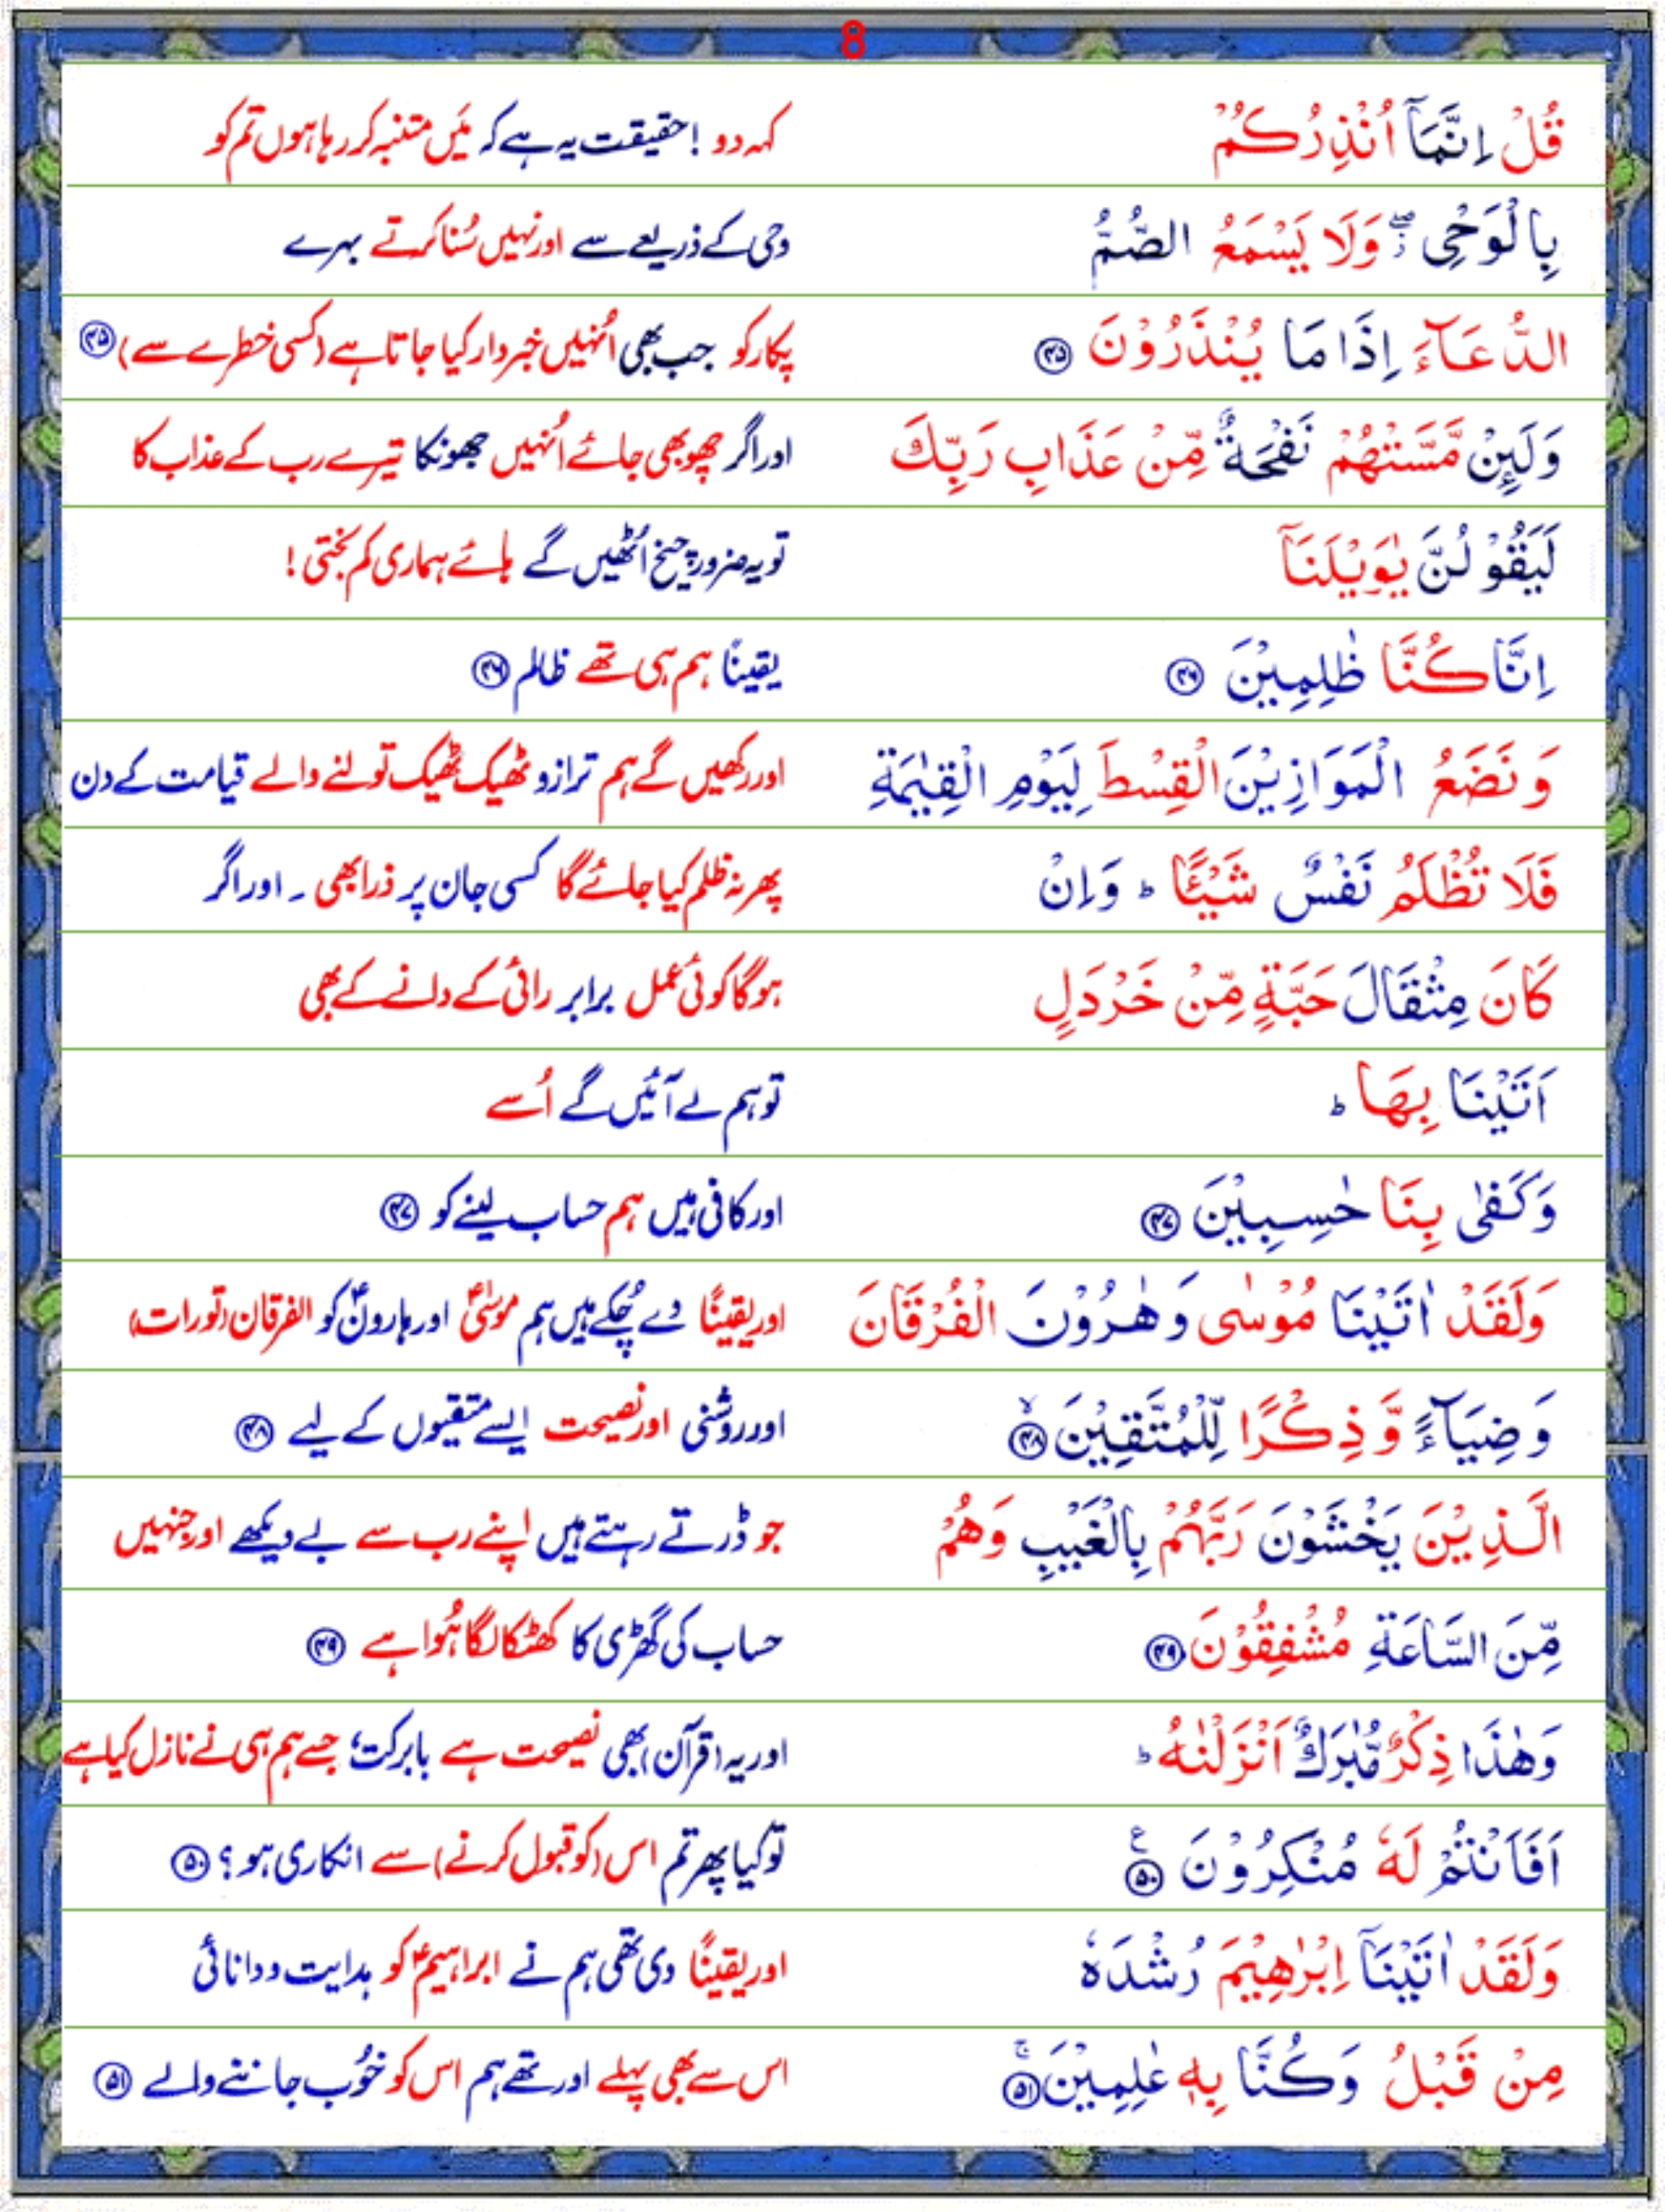 8
قُلْ اِنَّمَاۤ اُنْذِرُكُمْ کہہ دو ! حقیقت یہ ہے کہ مَیں متنبہ کر رہا ہوں تم کو
بِالْوَحْیِ ۖؗ وَلَا یَسْمَعُ الصُّمُّ وحی کے ذریعے سے اور نہیں سُنا کرتے بہرے
الدُّعَآءَ اِذَا مَا یُنْذَرُوْنَ ﴿۴۵﴾ پکار کو جب بھی اُنہیں خبردار کیا جاتا ہے (کسی خطرے سے) ﴿۴۵﴾
وَلَىِٕنْ مَّسَّتْهُمْ نَفْحَةٌ مِّنْ عَذَابِ رَبِّكَ اور اگر چھو بھی جائے اُنہیں جھونکا تیرے رب کے عذاب کا
لَیَقُوْلُنَّ یٰوَیْلَنَاۤ تو یہ ضرور چیخ اُٹھیں گے ہائے ہماری کم بختی !
اِنَّا كُنَّا ظٰلِمِیْنَ ﴿۴۶﴾ یقینًا ہم ہی تھے ظالم ﴿۴۶﴾
وَ نَضَعُ الْمَوَازِیْنَ الْقِسْطَ لِیَوْمِ الْقِیٰمَةِ اور رکھیں گے ہم ترازو ٹھیک ٹھیک تولنے والے قیامت کے دن
فَلَا تُظْلَمُ نَفْسٌ شَیْـًٔا ؕ وَاِنْ پھر نہ ظلم کیا جائے گا کسی جان پر ذرا بھی ۔ اور اگر
كَانَ مِثْقَالَ حَبَّةٍ مِّنْ خَرْدَلٍ ہوگا کوئی عمل برابر رائی کے دانے کے بھی
اَتَیْنَا بِهَا ؕ تو ہم لے آئیں گے اُسے
وَكَفٰی بِنَا حٰسِبِیْنَ ﴿۴۷﴾ اور کافی ہیں ہم حساب لینے کو ﴿۴۷﴾
وَلَقَدْ اٰتَیْنَا مُوْسٰی وَ هٰرُوْنَ الْفُرْقَانَ اور یقینًا دے چُکے ہیں ہم موسٰیؑ اور ہارونؑ کو الفرقان (تورات)
وَ ضِیَآءً وَّ ذِكْرًا لِّلْمُتَّقِیْنَ ﴿ۙ۴۸﴾ اور روشنی اور نصیحت ایسے متقیوں کے لیے ﴿۴۸﴾
الَّذِیْنَ یَخْشَوْنَ رَبَّهُمْ بِالْغَیْبِ وَهُمْ جو ڈرتے رہتے ہیں اپنے رب سے بے دیکھے اور جنہیں
مِّنَ السَّاعَةِ مُشْفِقُوْنَ ﴿۴۹﴾ حساب کی گھڑی کا کھٹکا لگا ہُوا ہے ﴿۴۹﴾
وَهٰذَا ذِكْرٌ مُّبٰرَكٌ اَنْزَلْنٰهُ ؕ اور یہ (قرآن) بھی نصیحت ہے بابرکت، جسے ہم ہی نے نازل کیا ہے
اَفَاَنْتُمْ لَهٗ مُنْكِرُوْنَ ﴿۵۰﴾ ع تو کیا پھر تم اس (کو قبول کرنے) سے انکاری ہو ؟ ﴿۵۰﴾
وَلَقَدْ اٰتَیْنَاۤ اِبْرٰهِیْمَ رُشْدَهٗ اور یقینًا دی تھی ہم نے ابراہیمؑ کو ہدایت و دانائی
مِنْ قَبْلُ وَكُنَّا بِهٖ عٰلِمِیْنَ ﴿ۚ۵۱﴾ اس سے بھی پہلے اور تھے ہم اس کو خُوب جاننے والے ﴿۵۱﴾